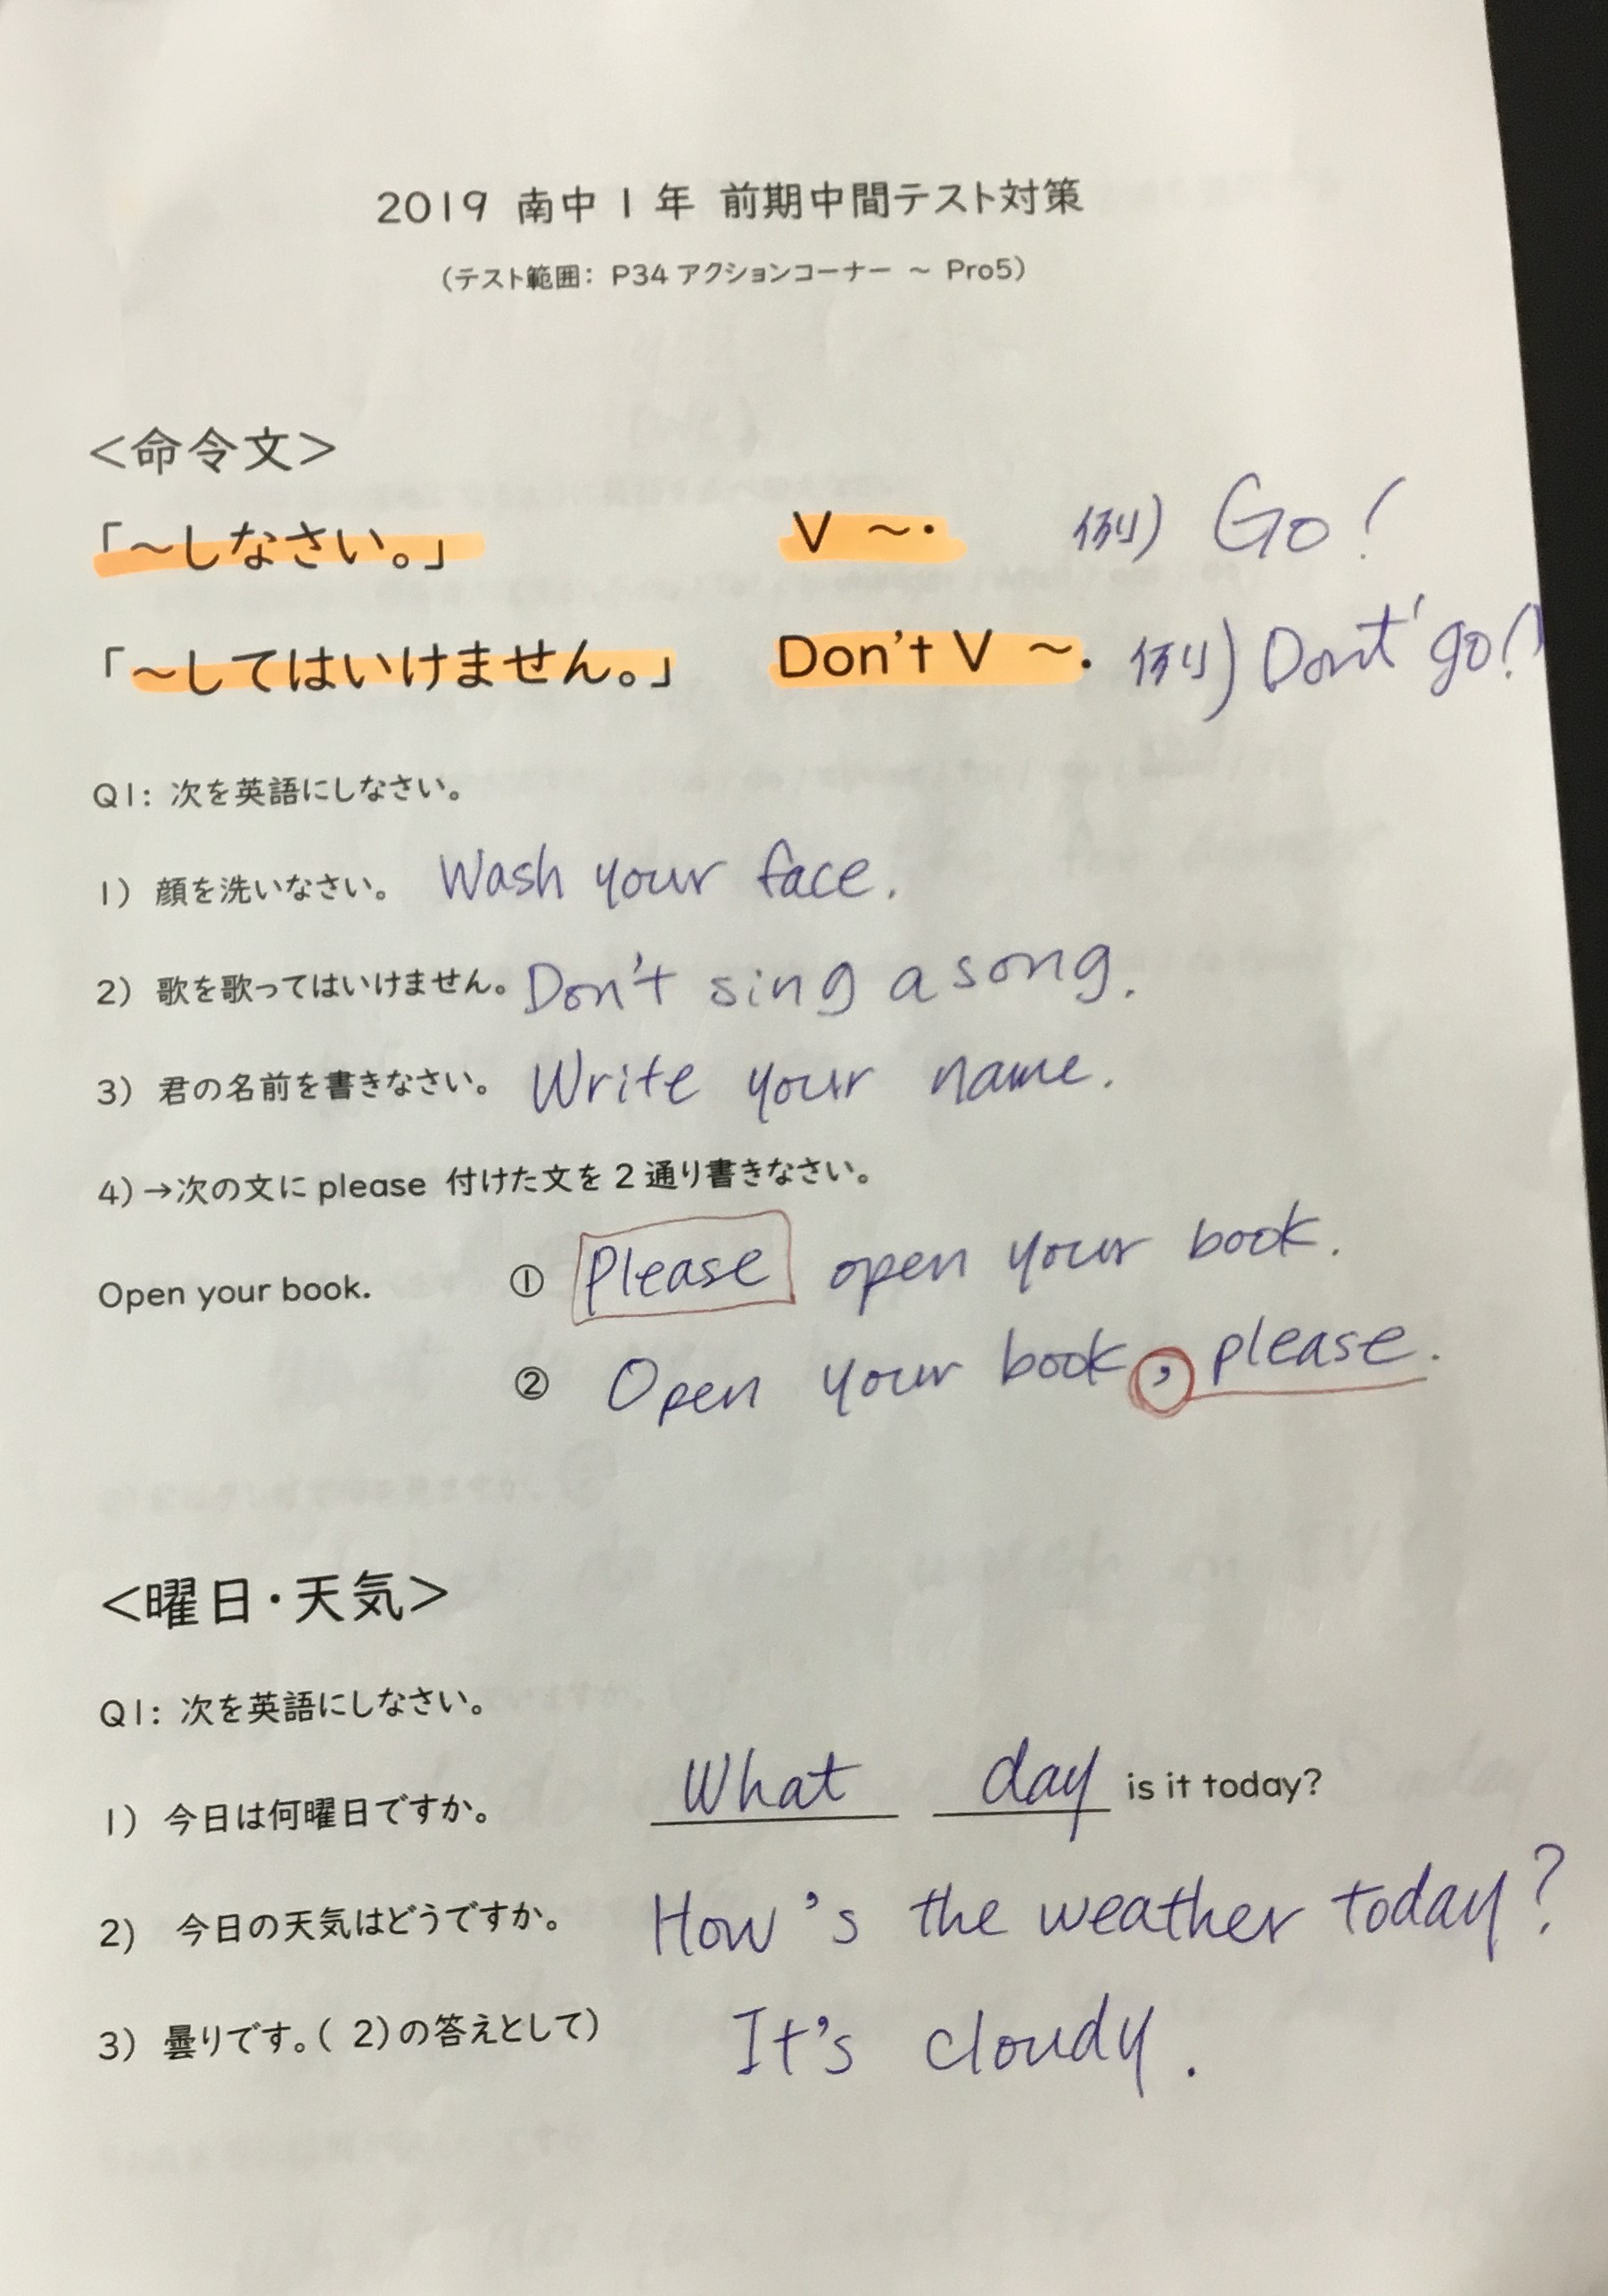 2019 南中1年 前期中間テスト対策
（テスト範囲： P34 アクションコーナー ～ Pro5）
＜命令文＞
「～しなさい。」 V ～. 例) Go!
「～してはいけません。」 Don't V ～. 例) Dont' go!
Q1: 次を英語にしなさい。
1) 顔を洗いなさい。 Wash your face.
2) 歌を歌ってはいけません。 Don't sing a song.
3) 君の名前を書きなさい。 Write your name.
4)→次の文に please 付けた文を2通り書きなさい。
Open your book. ① Please open your book.
② Open your book, please.
＜曜日・天気＞
Q1: 次を英語にしなさい。
1) 今日は何曜日ですか。 What day is it today?
2) 今日の天気はどうですか。 How's the weather today?
3) 曇りです。( 2)の答えとして) It's cloudy.